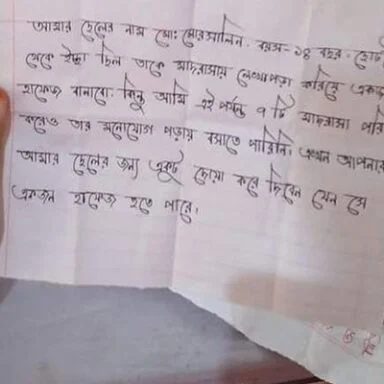 আমার ছেলের নাম মো: মোরসালিন. বয়স-১৪ বছর. ছোট
থেকে ইচ্ছা ছিল তাকে মাদ্রাসায় লেখাপড়া করিয়ে একজ
হাফেজ বানাবো কিন্তু আমি এই পর্যন্ত ৭ টি মাদ্রাসা পরি
করেও তার মনোযোগ পড়ায় বসাতে পারিনি। এখন আপনার
আমার ছেলের জন্য একটু দোয়া করে দিবেন যেন সে
একজন হাফেজ হতে পারে।